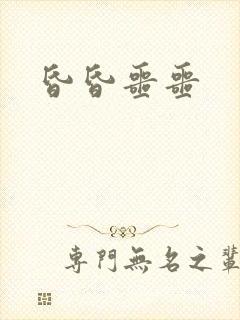 昏昏噩噩
專門無名之輩